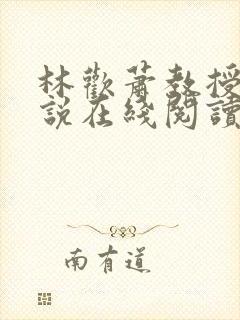 林歡蕭教授
說在綫閱讀
南有道